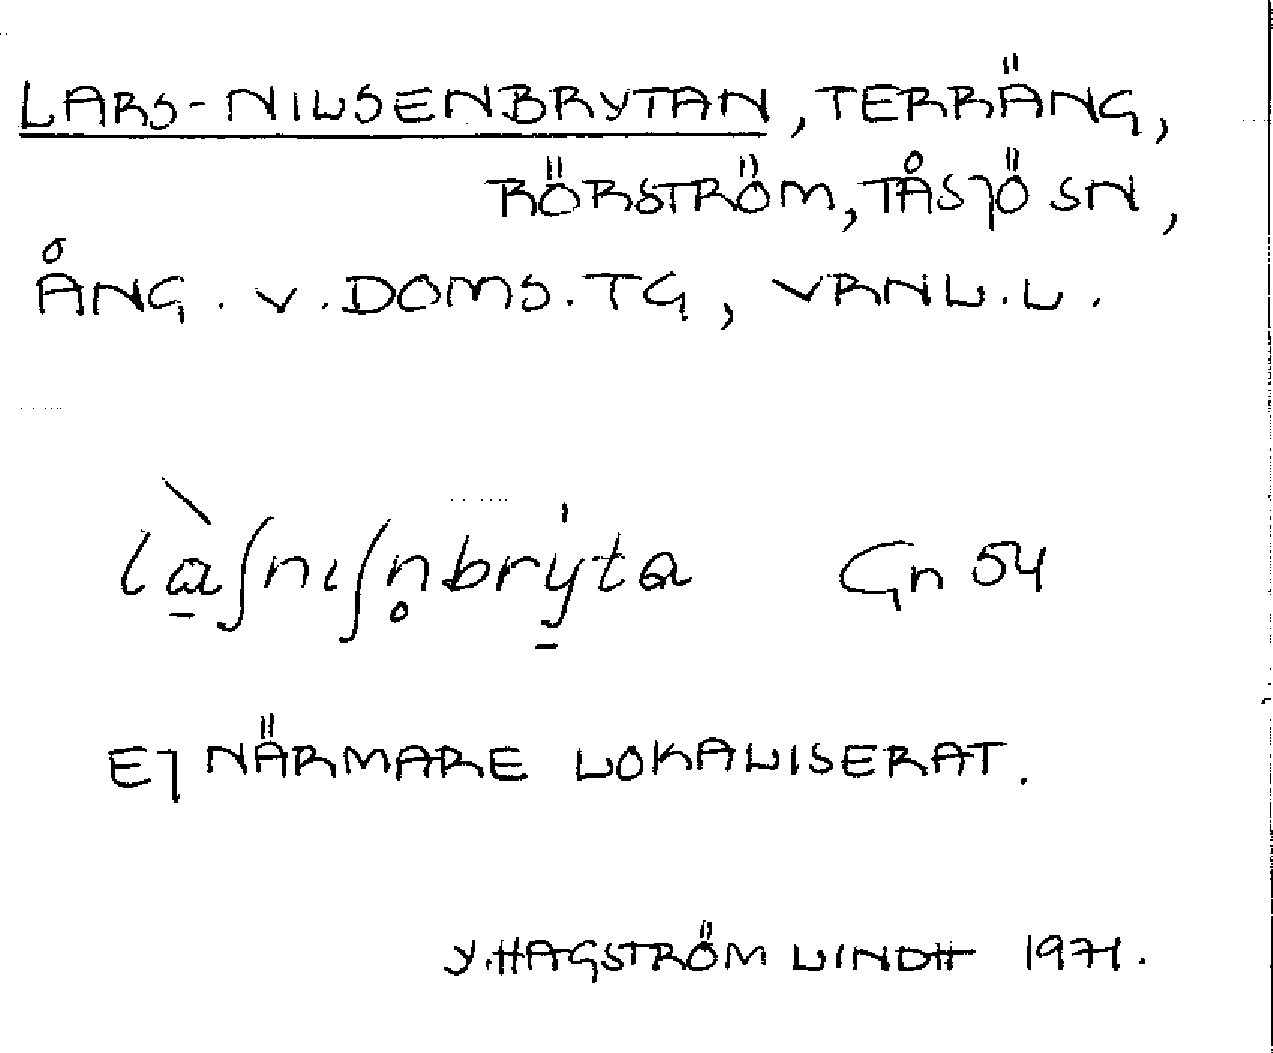 LARS-NILSENBRYTAN, TERRÄNG,
RÖRSTRÖM, TÅSJÖ SN,
ÅNG. V. DOMS. TG, VRNL. L.
là̱ʃnıʃn̥brẏ̱ta Gn 54
EJ NÄRMARE LOKALISERAT.
Y. HAGSTRÖM LINDH 1971.